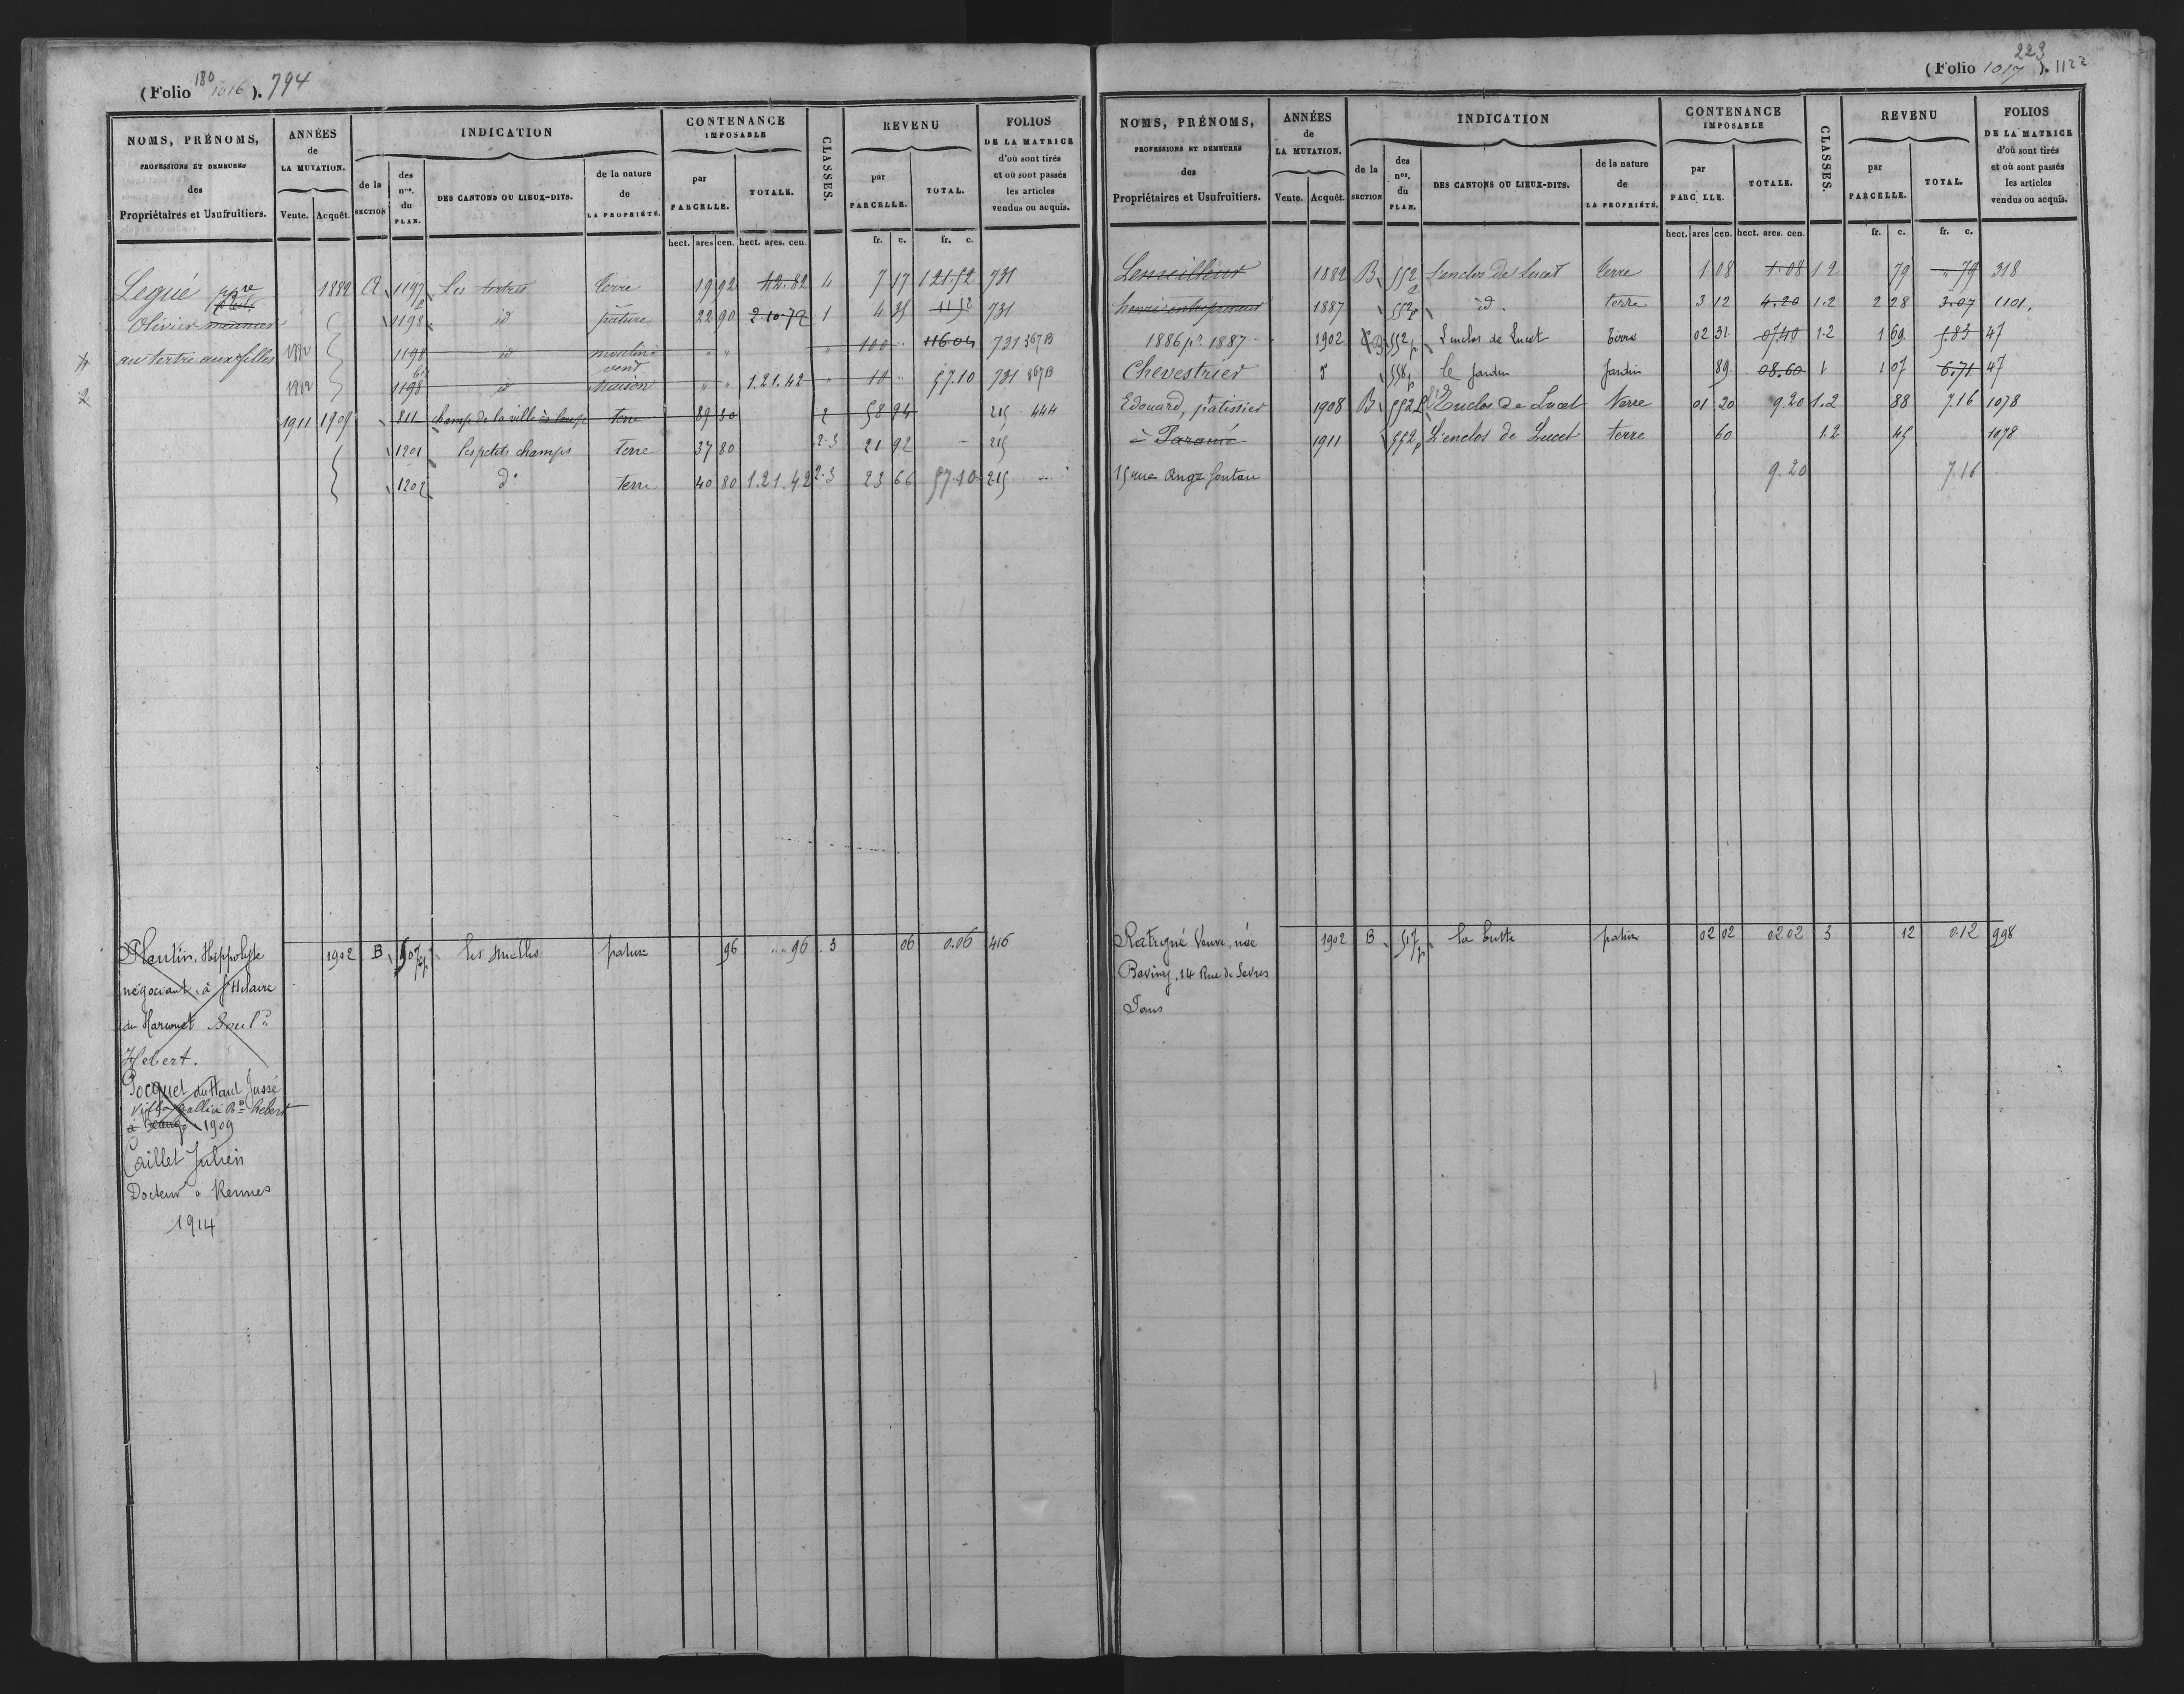 (Folio 180 1016). 794
NOMS, PRÉNOMS,
PROFESSIONS ET DEMEURES
des
Propriétaires et Usufruitiers.
ANNÉES
de
LA MUTATION.
Vente. Acquêt.
INDICATION
de la
SECTION
des
nos.
du
PLAN.
DES CANTONS OU LIEUX-DITS.
de la nature
de
LA PROPRIÉTÉ.
CONTENANCE
IMPOSABLE
par
PARCELLE.
TOTALE.
CLASSES.
REVENU
par
PARCELLE.
TOTAL.
FOLIOS
DE LA MATRICE
d'où sont tirés
et où sont passés
les articles
vendus ou acquis.
hect. ares cen. hect. ares. cen. fr. c. fr. c.
Legué 1882 A 1197 Les tertres terre 19 92 42.82 4 7 17 121.52 731
Olivier meunier 1198 id pature 22 90 2.10.72 1 4 35 11.52 731
au tertre aux filles 1882 1198 id moulin à vent " " " 100 " 116.04 731 367 B
1882 1198 bis id maison " " 1.21.42 " 10 " 57.10 731 367 B
1911 1909 811 champ de la ville ès loup terre 89 30 2 58 94 215 444
1201 les petits champs terre 37 80 2.3 21 92 215
1202 do terre 40 80 1.21.42 2.3 23 66 57.10 215
Plentin, Hippolyte 1902 B 507p les mielles pature 96 " " 96 3 06 0.06 416
négociant, à St Hilaire
du Harcouet Boul.d
Hebert.
Pocquet du Haut Jussé
Villa Gallia Bd Hebert
1909
Caillet Julien
Docteur à Rennes
1914
(Folio 1017). 223 1122
NOMS, PRÉNOMS,
PROFESSIONS ET DEMEURES
des
Propriétaires et Usufruitiers.
ANNÉES
de
LA MUTATION.
Vente. Acquêt.
INDICATION
de la
SECTION
des
nos.
du
PLAN.
DES CANTONS OU LIEUX-DITS.
de la nature
de
LA PROPRIÉTÉ.
CONTENANCE
IMPOSABLE
par
PARCELLE.
TOTALE.
CLASSES.
REVENU
par
PARCELLE.
TOTAL.
FOLIOS
DE LA MATRICE
d'où sont tirés
et où sont passés
les articles
vendus ou acquis.
hect. ares cen. hect. ares. cen. fr. c. fr. c.
1882 B 552 L'enclos de Lucet terre 1 08 1.08 1.2 79 " 79 318
henri entrepreneur 1887 552p id. terre 3 12 4.20 1.2 2 28 3.07 1101.
1886 pr 1887 1902 B 552p L'enclos de Lucet terre 02 31 07.40 1.2 1 69 5.83 47
Chevestrier 558p le Jardin Jardin 89 08.60 1 1 07 6.71 47
Edouard, patissier 1908 B 552p L'Enclos de Lucet Terre 01 20 9.20 1.2 88 7.16 1078
à Paramé 1911 552p L'enclos de Lucet terre 60 1.2 45 1078
15 rue Ange fontan 9.20 7.16
Ratrigné Veuve, née 1902 B 517p la butte pature 02 02 02 02 3 12 0.12 998
14 Rue de Sèvres
Paris